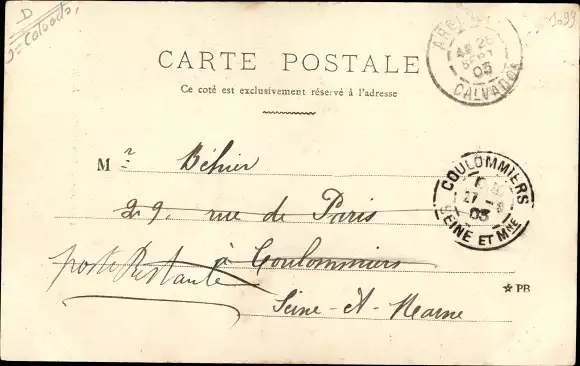 D
Calvados
1099
CARTE POSTALE
Ce coté est exclusivement réservé à l'adresse
25
SEPT
03
CALVADOS
Mr Béhier
29, rue de Paris
à Coulommiers
poste Restante
Seine-et-Marne
COULOMMIERS
27
03
SEINE ET MNE
PB